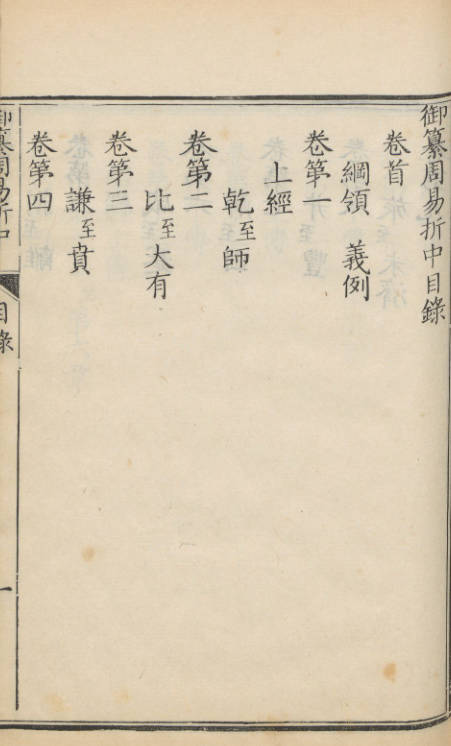 御纂周易折中目錄
卷首
綱領 義例
卷第一
上經
乾至師
卷第二
比至大有
卷第三
謙至賁
卷第四
御纂周易折中
目錄
一